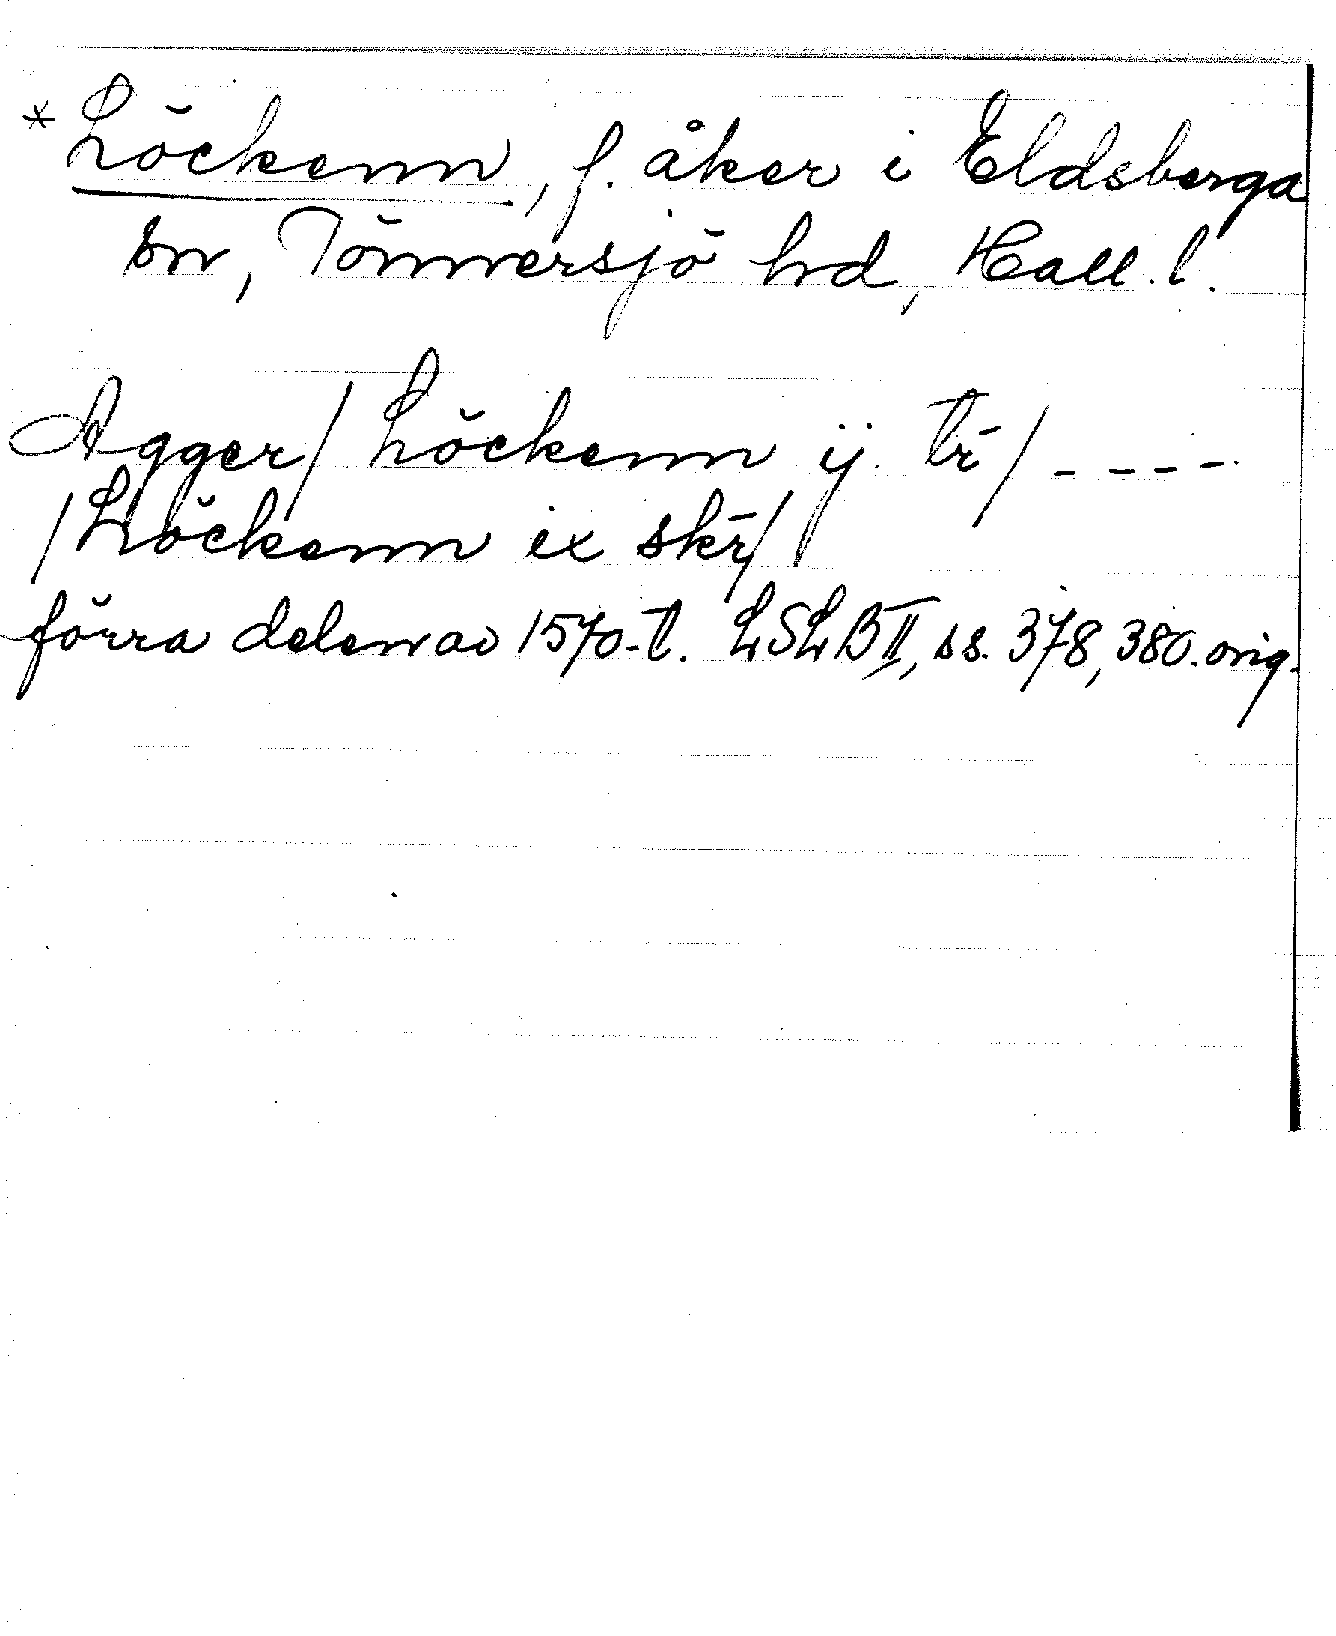 *Löckenn, f. åker i Eldsberga
sn, Tönnersjö hd, Hall. l.
Agger / Löckenn ij. tr̄ / - - - -
/ Löckenn ix skr̄ /
förra delen av 1570-t. LSLB II, ss. 378, 380. orig.